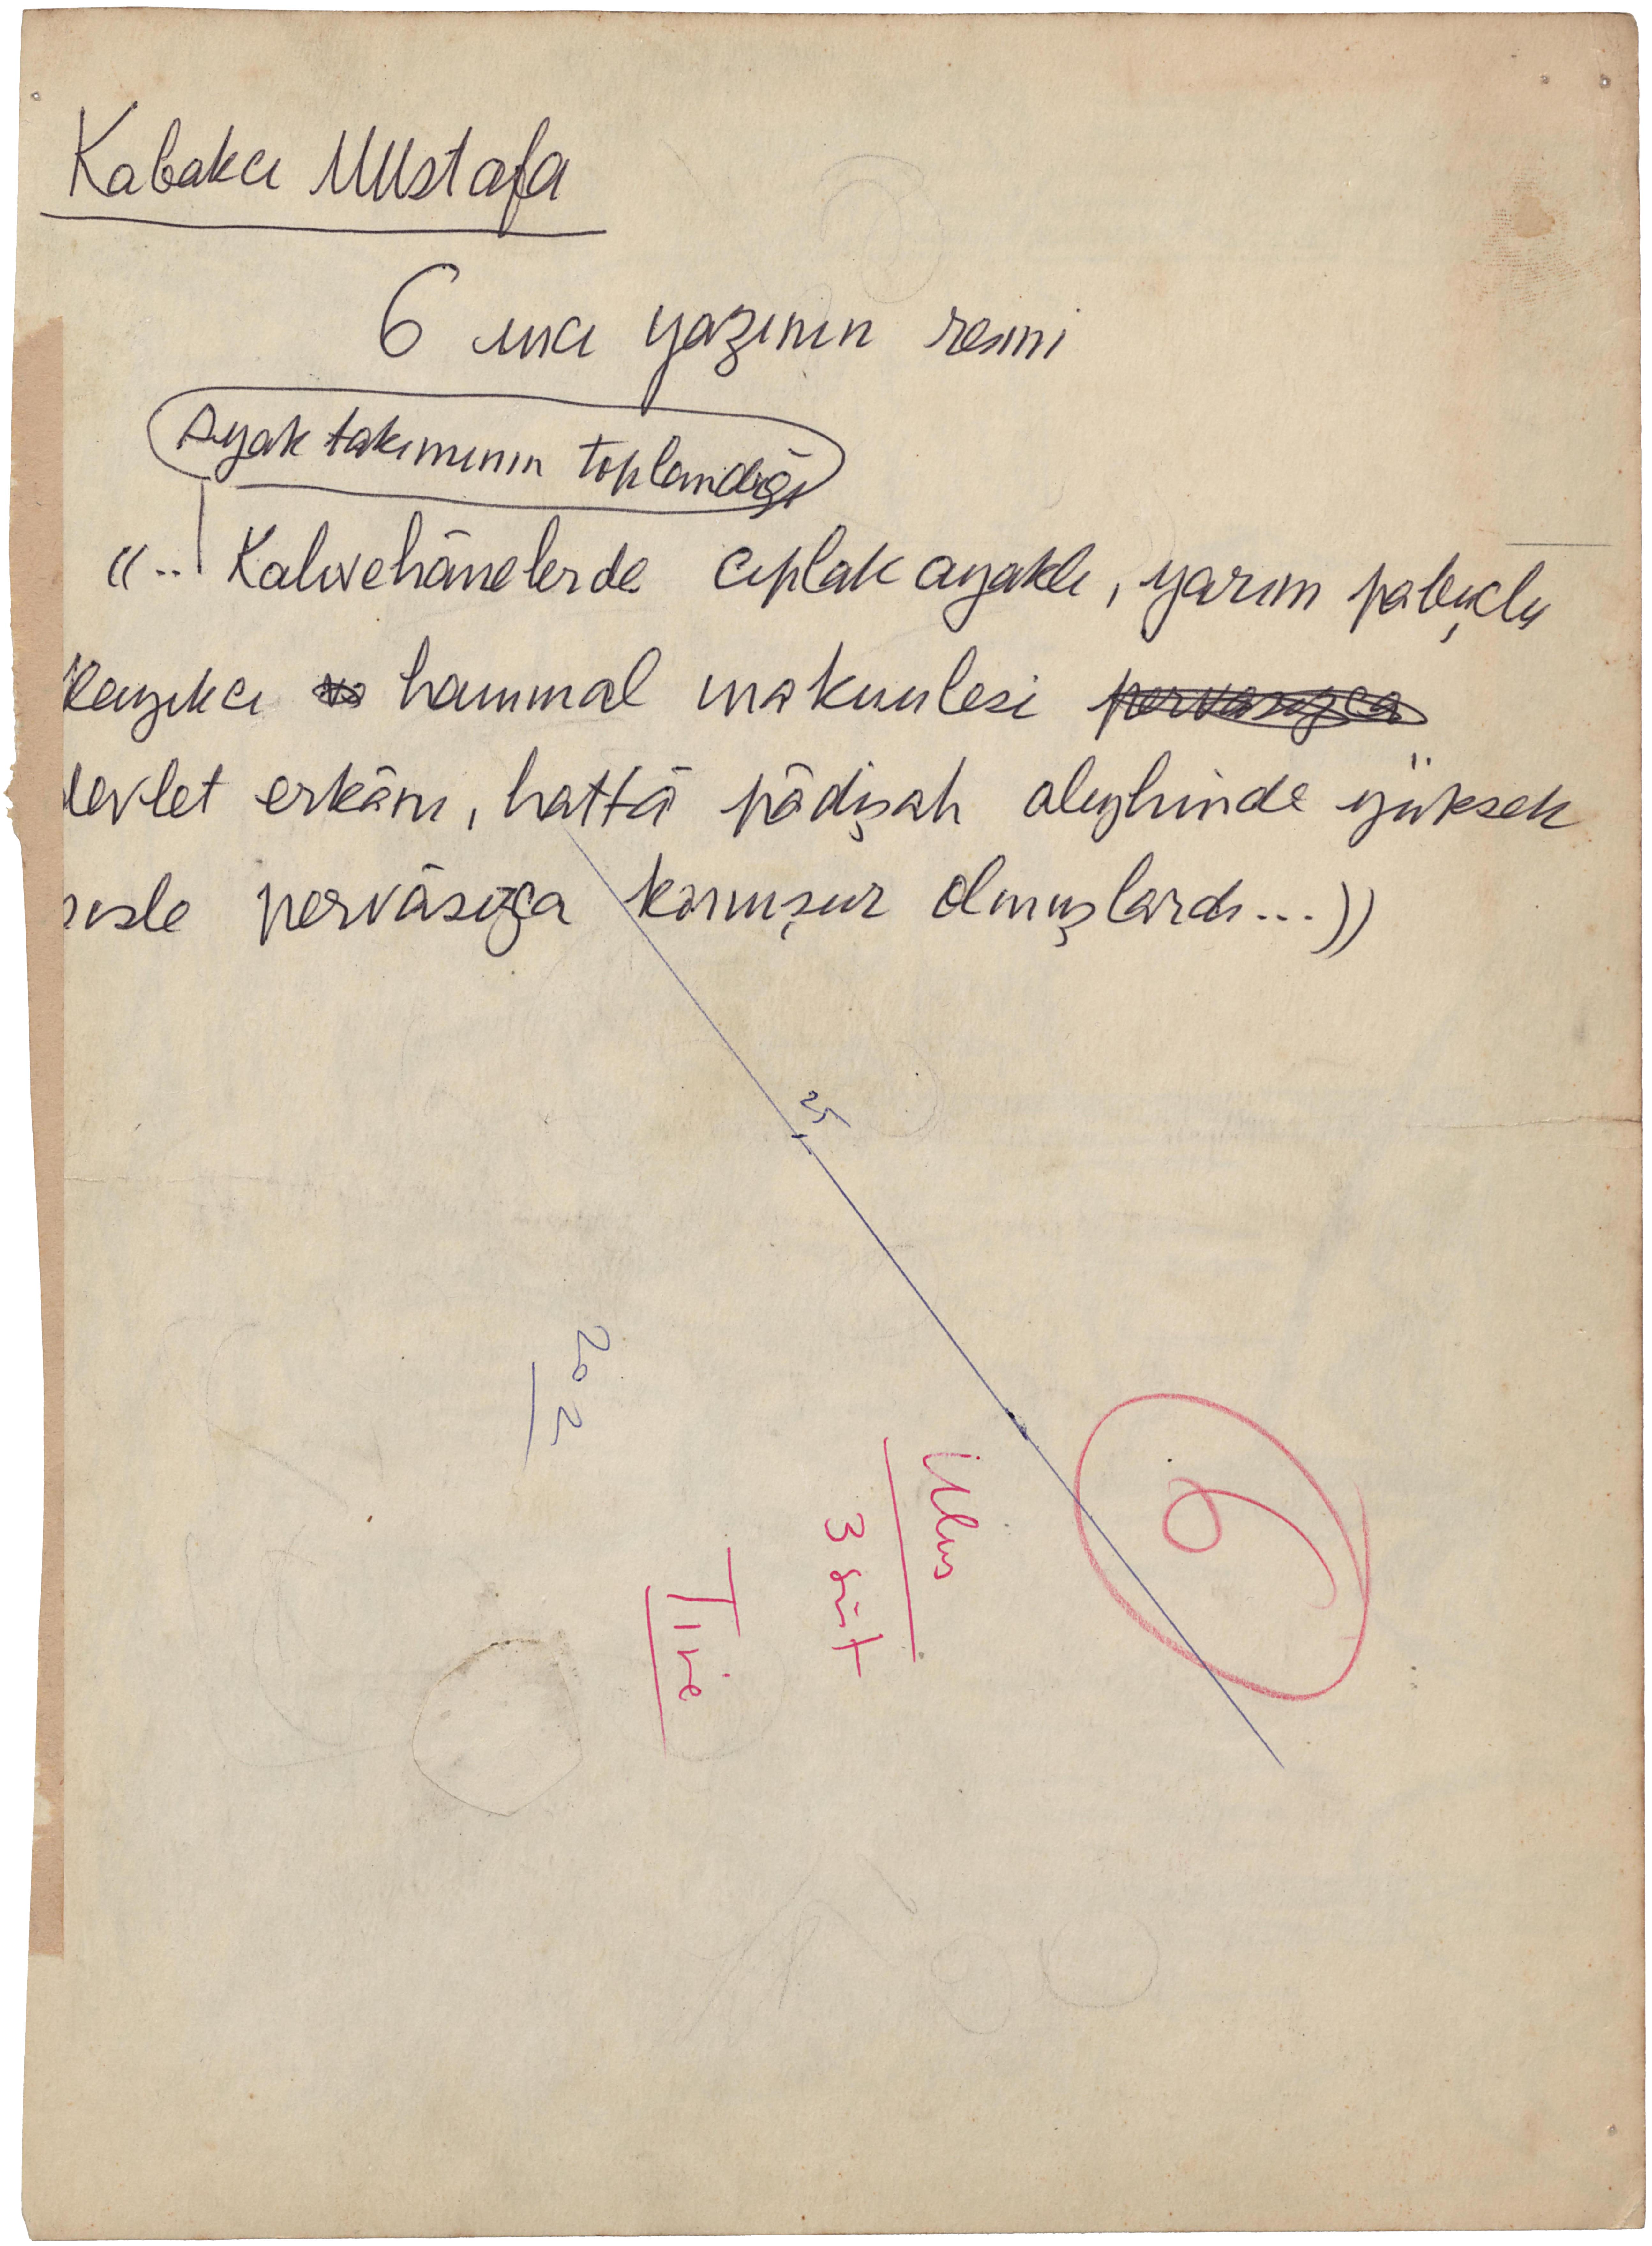 Kabakcı Mustafa
6 ıncı yazının resmi
Ayak takımının toplandığı
«.. Kahvehânelerde cıplak ayaklı, yarım pabuçlu
kayıkcı hammal makuulesi
devlet erkânı, hattâ pâdişah aleyhinde yüksek
sesle pervâsızca konuşur olmuşlardı...»
25
20 2
Ulus
3 süt
Tire
6